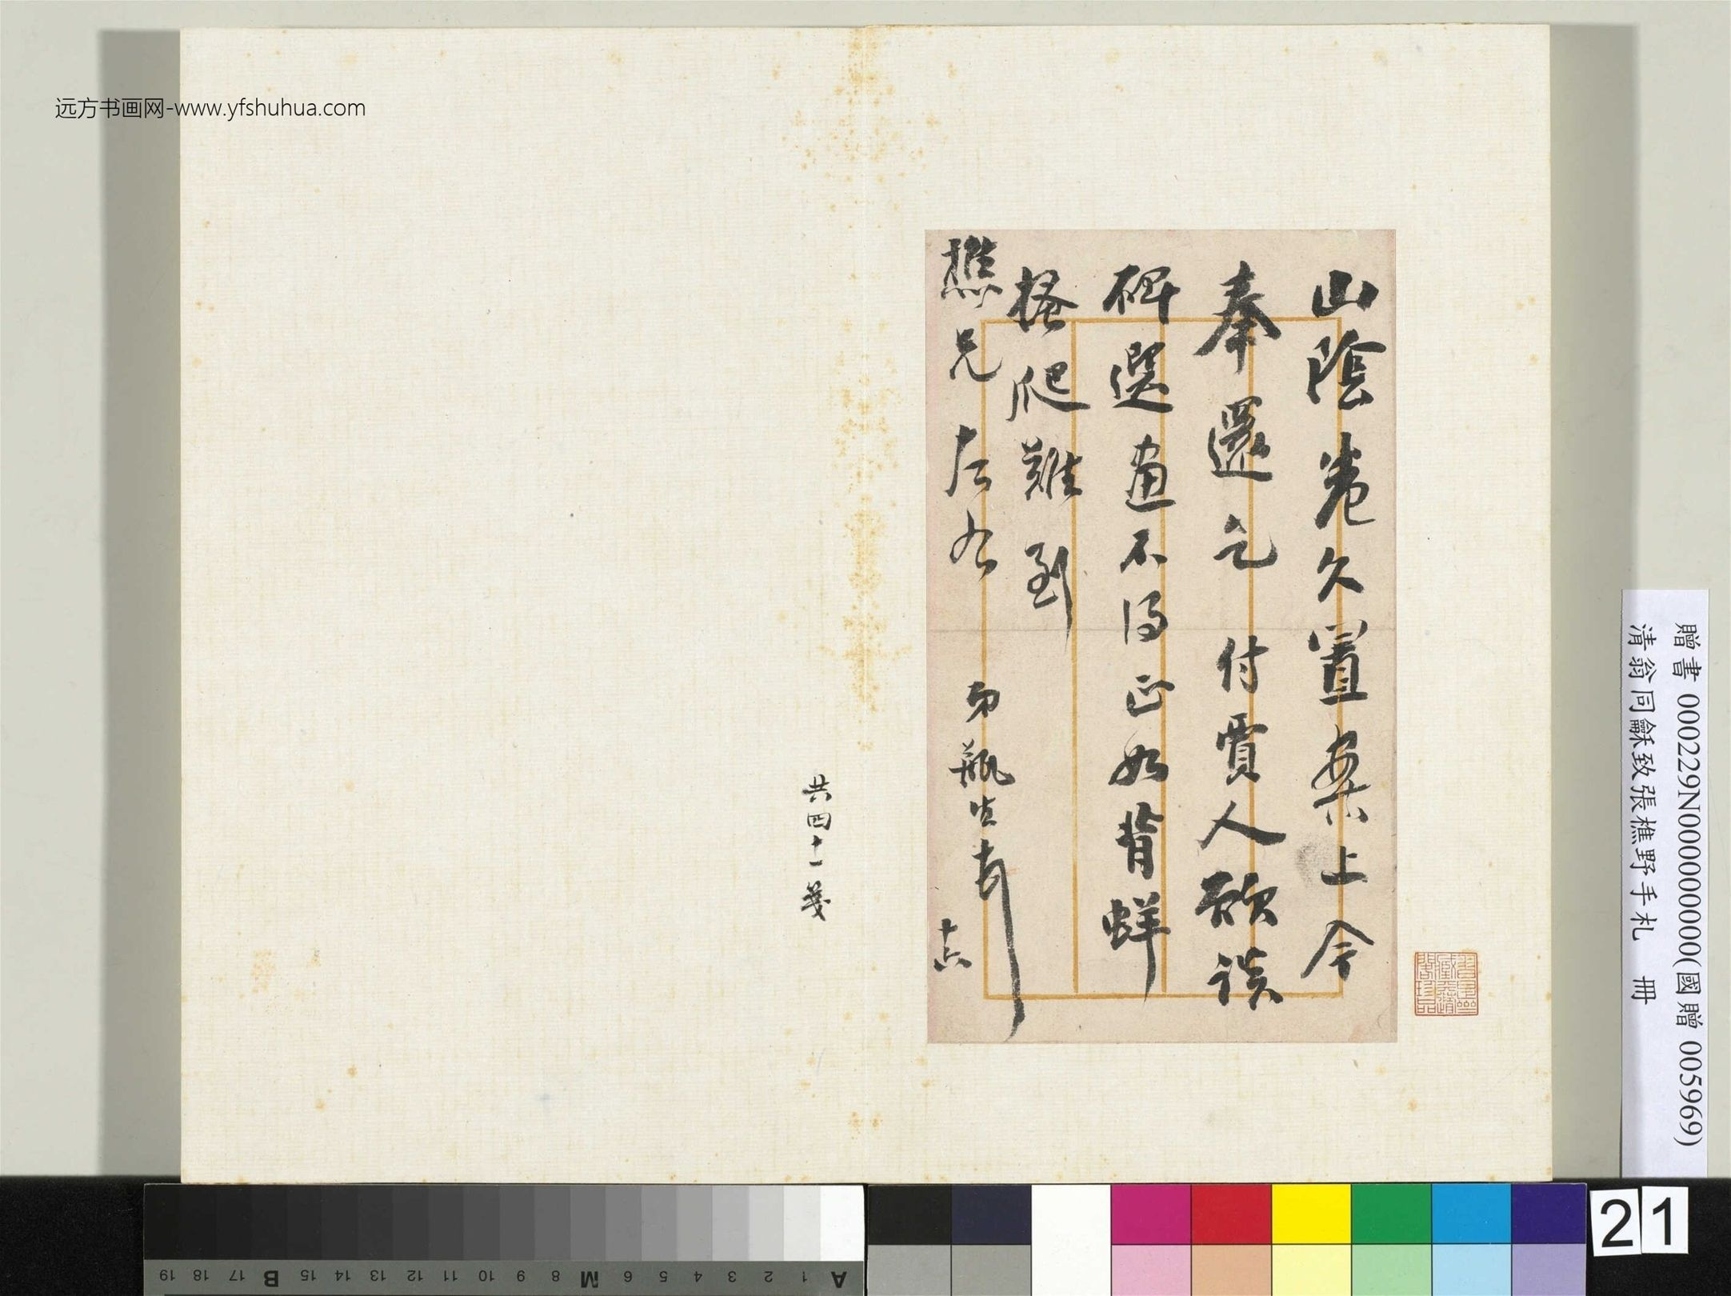 远方书画网-www.yfshuhua.com
山陰卷久置案上今
奉還乞 付賈人頌談
碑選畫不得正如背蛘
搔爬難到
樵兄左右
弟瓶生頓
十六
共四十一箋
贈書 000229N000000000(國贈 005969)
清翁同龢致張樵野手札 冊
21
A 1 2 3 4 5 6 M 8 9 10 11 12 13 14 15 B 17 18 19